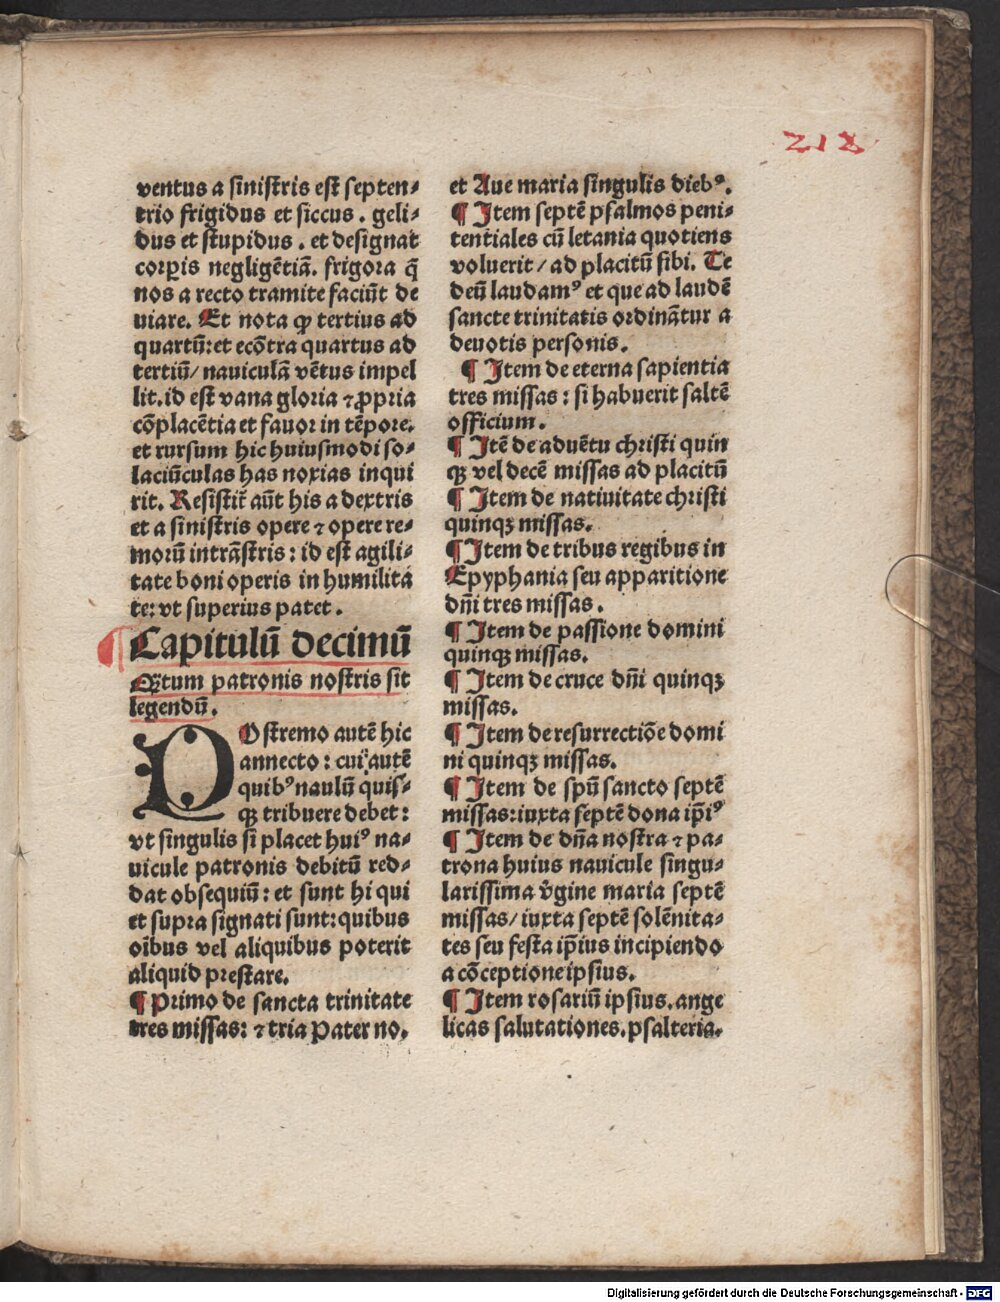 218
ventus a sinistris est septen-
trio frigidus et siccus . geli-
dus et stupidus . et designat
corꝑis negligētiā. frigora q̄
nos a recto tramite faciūt de
uiare. Et nota ꝙ tertius ad
quartū: et ecōtra quartus ad
tertiū/ nauiculā vētus impel
lit. id est vana gloria ⁊ ꝓpria
cōplacētia et fauor in tēpore.
et rursum hic huiusmodi so-
laciūculas has noxias inqui
rit. Resistit̄ aūt his a dextris
et a sinistris opere ⁊ opere re-
morū intrāstris: id est agili-
tate boni operis in humilita
te: vt superius patet .
¶ Capitulū decimū
Qͣtum patronis nostris sit
legendū.
POstremo autē hic
annecto : cui autē
quibꝰ naulū quis-
qꝫ tribuere debet :
vt singulis si placet huiꝰ na-
uicule patronis debitū red-
dat obsequiū: et sunt hi qui
et supra signati sunt: quibus
oībus vel aliquibus poterit
aliquid prestare.
¶ Primo de sancta trinitate
tres missas: ⁊ tria Pater no.
et Aue maria singulis diebꝰ.
¶ Item septē psalmos peni-
tentiales cū letania quotiens
voluerit / ad placitū sibi. Te
deū laudamꝰ et que ad laudē
sancte trinitatis ordinātur a
deuotis personis.
¶ Item de eterna sapientia
tres missas : si habuerit saltē
officium .
¶ Itē de aduētu christi quin
qꝫ vel decē missas ad placitū
¶ Item de natiuitate christi
quinqꝫ missas.
¶ Item de tribus regibus in
Epyphania seu apparitione
dn̄i tres missas .
¶ Item de passione domini
quinqꝫ missas.
¶ Item de cruce dn̄i quinqꝫ
missas.
¶ Item de resurrectiōe domi
ni quinqꝫ missas.
¶ Item de spū sancto septē
missas: iuxta septē dona ip̄iꝰ
¶ Item de dn̄a nostra ⁊ pa-
trona huius nauicule singu-
larissima v̄gine maria septē
missas/ iuxta septē solēnita-
tes seu festa ip̄ius incipiendo
a cōceptione ipsius.
¶ Item rosariū ipsius. ange
licas salutationes. psalteria.
Digitalisierung gefördert durch die Deutsche Forschungsgemeinschaft - DFG